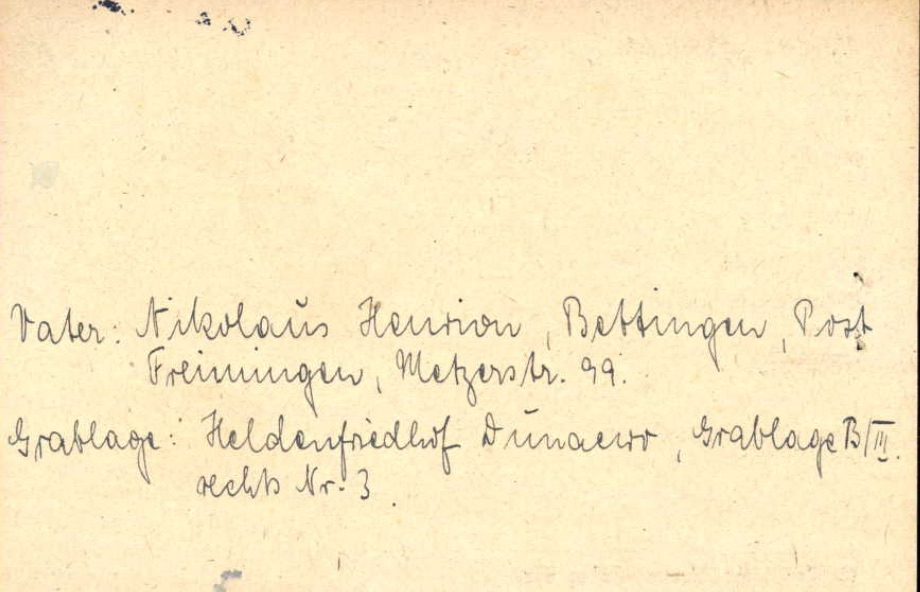 Vater: Nikolaus Henrion, Bettingen, Post
Freimingen, Metzerstr. 99.
Grablage: Heldenfriedhof Dunaewo, Grablage B/III.
rechts Nr. 3.